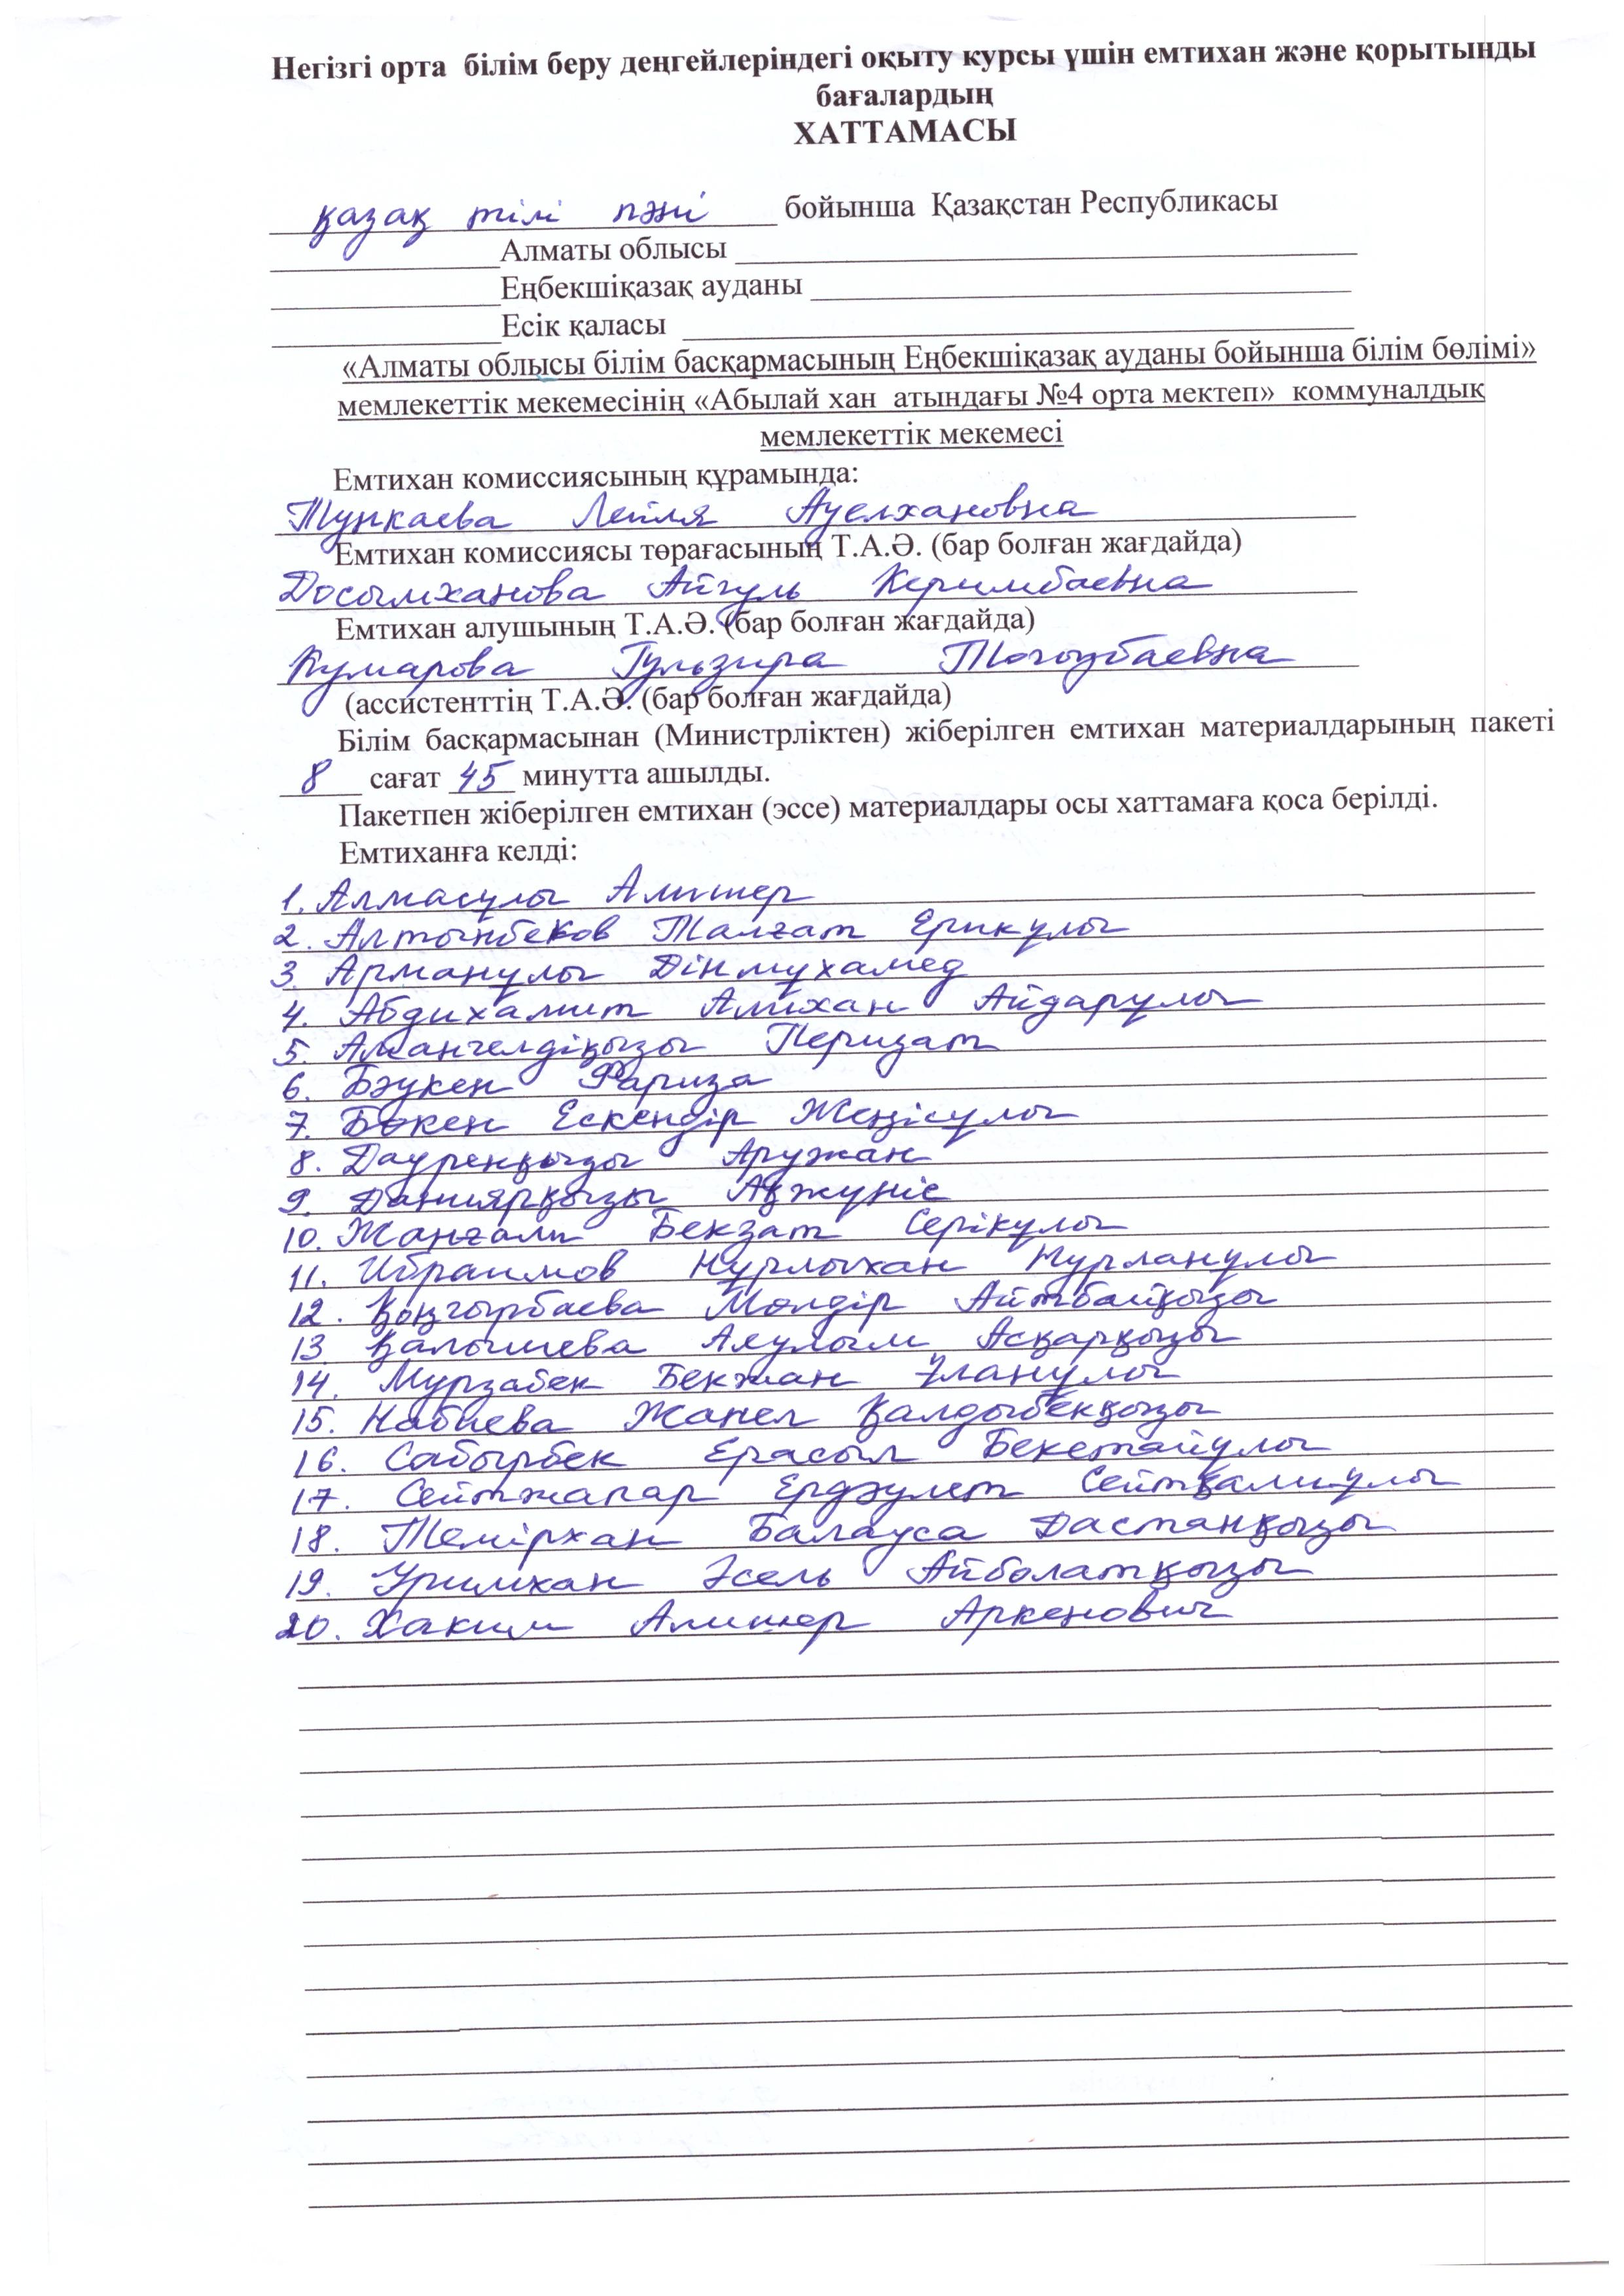 Негізгі орта білім беру деңгейлеріндегі оқыту курсы үшін емтихан және қорытынды
бағалардың
ХАТТАМАСЫ
қазақ тілі пәні бойынша Қазақстан Республикасы
Алматы облысы
Еңбекшіқазақ ауданы
Есік қаласы
«Алматы облысы білім басқармасының Еңбекшіқазақ ауданы бойынша білім бөлімі»
мемлекеттік мекемесінің «Абылай хан атындағы №4 орта мектеп» коммуналдық
мемлекеттік мекемесі
Емтихан комиссиясының құрамында:
Тункаева Лейля Ауелхановна
Емтихан комиссиясы төрағасының Т.А.Ә. (бар болған жағдайда)
Досымханова Айгуль Керимбаевна
Емтихан алушының Т.А.Ә. (бар болған жағдайда)
Кумарова Гульзира Тогызбаевна
(ассистенттің Т.А.Ә. (бар болған жағдайда)
Білім басқармасынан (Министрліктен) жіберілген емтихан материалдарының пакеті
8 сағат 45 минутта ашылды.
Пакетпен жіберілген емтихан (эссе) материалдары осы хаттамаға қоса берілді.
Емтиханға келді:
1. Алмасұлы Алишер
2. Алтынбеков Талғат Ерікұлы
3. Арманұлы Дінмұхамед
4. Абдихамит Алихан Айдарұлы
5. Амангелдіқызы Перизат
6. Бәукен Фариза
7. Бөкен Ескендір Жеңісұлы
8. Дауренқызы Аружан
9. Даниярқызы Ақжүніс
10. Жанғали Бекзат Серікұлы
11. Ибраимов Нұрлыхан Нұрланұлы
12. Қоңғырбаева Мөлдір Айтбайқызы
13. Қалышева Аяулым Асқарқызы
14. Мурзабек Бекжан Ұланұлы
15. Набиева Жанел Қалдыбекқызы
16. Сабырбек Ерасыл Бекетайұлы
17. Сейтжапар Ердәулет Сейтқалиұлы
18. Темірхан Балауса Дастанқызы
19. Уримхан Әсель Айболатқызы
20. Хаким Алишер Аркенович